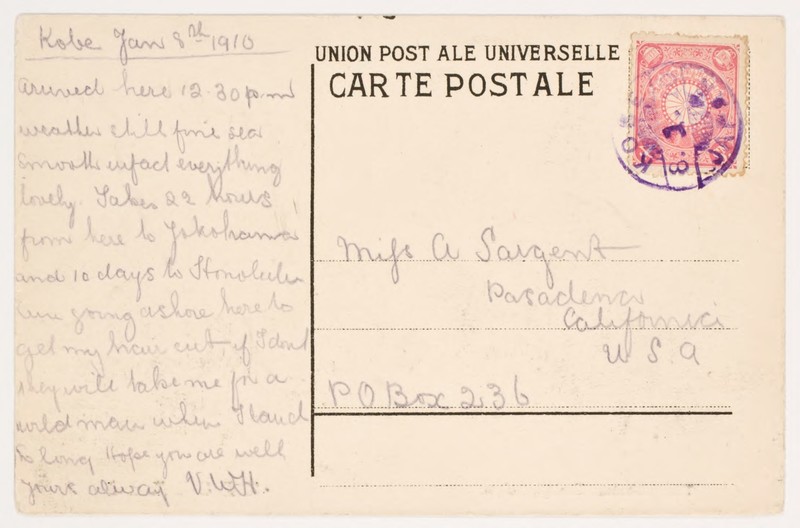 Kobe Jan 8th 1910
arrived here 12.30 p.m
weather still fine sea
smooth infact everything
lovely. Takes 22 hours
from here to Yokohama
and 10 days to Honolulu
am going ashore here to
get my hair cut, if I dont
they will take me for a
wild man when I land
So long Hope you are well
yours alway V.W.H.
UNION POST ALE UNIVERSELLE
CARTE POSTALE
Miss A Sargent
Pasadena
California
U S A
P O Box 236
KOBE
JAPAN